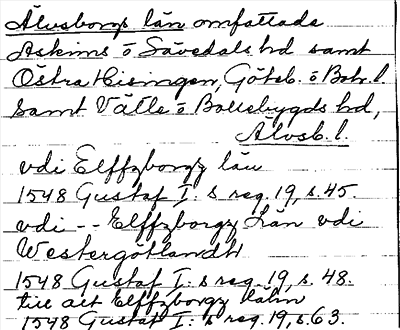 Älvsborgs län omfattade
Askims o Sävedals hd samt
Östra Hisingen, Göteb. o Boh. l.
samt Vätle o Bollebygds hd,
Älvsb. l.
vdi Elffzborgz län
1548 Gustaf I:s reg. 19, s. 45.
vdi -- Elffzborgz Län vdi
Westergötlandh
1548 Gustaf I:s reg. 19, s. 48.
till alt Elffzborgz lähn
1548 Gustaf I:s reg. 19, s 63.